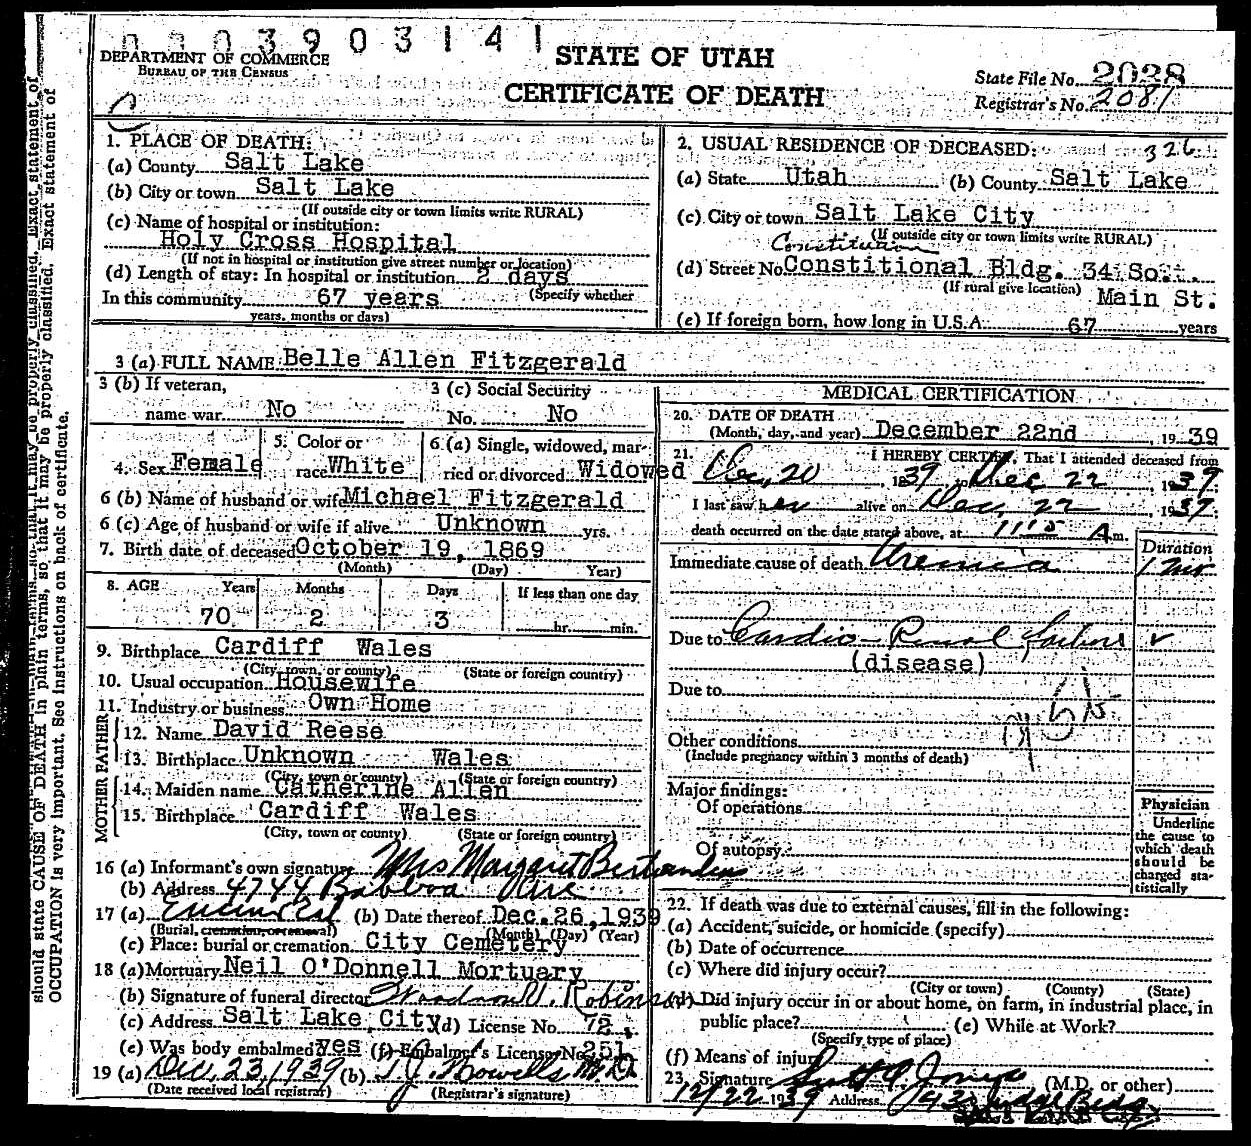 0003903141
DEPARTMENT OF COMMERCE
BUREAU OF THE CENSUS
STATE OF UTAH
CERTIFICATE OF DEATH
State File No. 2028
Registrar's No. 2081
1. PLACE OF DEATH:
(a) County Salt Lake
(b) City or town Salt Lake
(If outside city or town limits write RURAL)
(c) Name of hospital or institution:
Holy Cross Hospital
(If not in hospital or institution give street number or location)
(d) Length of stay: In hospital or institution 2 days
In this community 67 years (Specify whether
years, months or days)
2. USUAL RESIDENCE OF DECEASED: 326
(a) State Utah (b) County Salt Lake
(c) City or town Salt Lake City
(If outside city or town limits write RURAL)
Constitution
(d) Street No. Constitional Bldg. 34 So.
(If rural give location) Main St.
(e) If foreign born, how long in U.S.A. 67 years
3 (a) FULL NAME Belle Allen Fitzgerald
3 (b) If veteran,
name war No
3 (c) Social Security
No. No
4. Sex Female
5. Color or
race White
6. (a) Single, widowed, mar-
ried or divorced Widowed
6 (b) Name of husband or wife Michael Fitzgerald
6 (c) Age of husband or wife if alive Unknown yrs.
7. Birth date of deceased October 19, 1869
(Month) (Day) Year)
8. AGE Years Months Days If less than one day
70 2 3 hr. min.
9. Birthplace Cardiff Wales
(City, town, or county) (State or foreign country)
10. Usual occupation Housewife
11. Industry or business Own Home
FATHER
12. Name David Reese
13. Birthplace Unknown Wales
(City, town or county) (State or foreign country)
MOTHER
14. Maiden name Catherine Allen
15. Birthplace Cardiff Wales
(City, town or county) (State or foreign country)
16 (a) Informant's own signature Mrs Margaret
(b) Address 4744 Ave
17 (a) (b) Date thereof Dec. 26, 1939
(Burial, cremation, or removal) (Month) (Day) (Year)
(c) Place: burial or cremation City Cemetery
18 (a) Mortuary Neil O'Donnell Mortuary
(b) Signature of funeral director Woodrow W. Robinson
(c) Address Salt Lake City (d) License No. 72
(e) Was body embalmed? yes (f) Embalmer's License No. 251
19 (a) Dec. 23, 1939 (b) M.D.
(Date received local registrar) (Registrar's signature)
MEDICAL CERTIFICATION
20. DATE OF DEATH
(Month, day, and year) December 22nd, 1939
21. I HEREBY CERTIFY, That I attended deceased from
Dec, 20 1939 to Dec 22 1939
I last saw her alive on Dec, 22 1939
death occurred on the date stated above, at 11:15 A m.
Duration
Immediate cause of death Uremia
Due to Cardio-Renal failure
(disease)
Due to
Other conditions
(Include pregnancy within 3 months of death)
Major findings:
Of operations
Of autopsy
Physician
Underline
the cause to
which death
should be
charged sta-
tistically
22. If death was due to external causes, fill in the following:
(a) Accident, suicide, or homicide (specify)
(b) Date of occurrence
(c) Where did injury occur?
(City or town) (County) (State)
(d) Did injury occur in or about home, on farm, in industrial place, in
public place? (e) While at Work?
(Specify type of place)
(f) Means of injury
23. Signature Jones (M.D. or other)
12/22 1939 Address Judge Bldg
should state CAUSE OF DEATH in plain terms, so that it may be properly classified. Exact statement of
OCCUPATION is very important. See instructions on back of certificate.